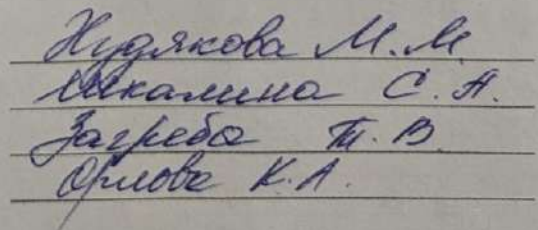 Худякова М.М.
Шкалина С.А.
Загреба Т.В.
Орлова К.А.